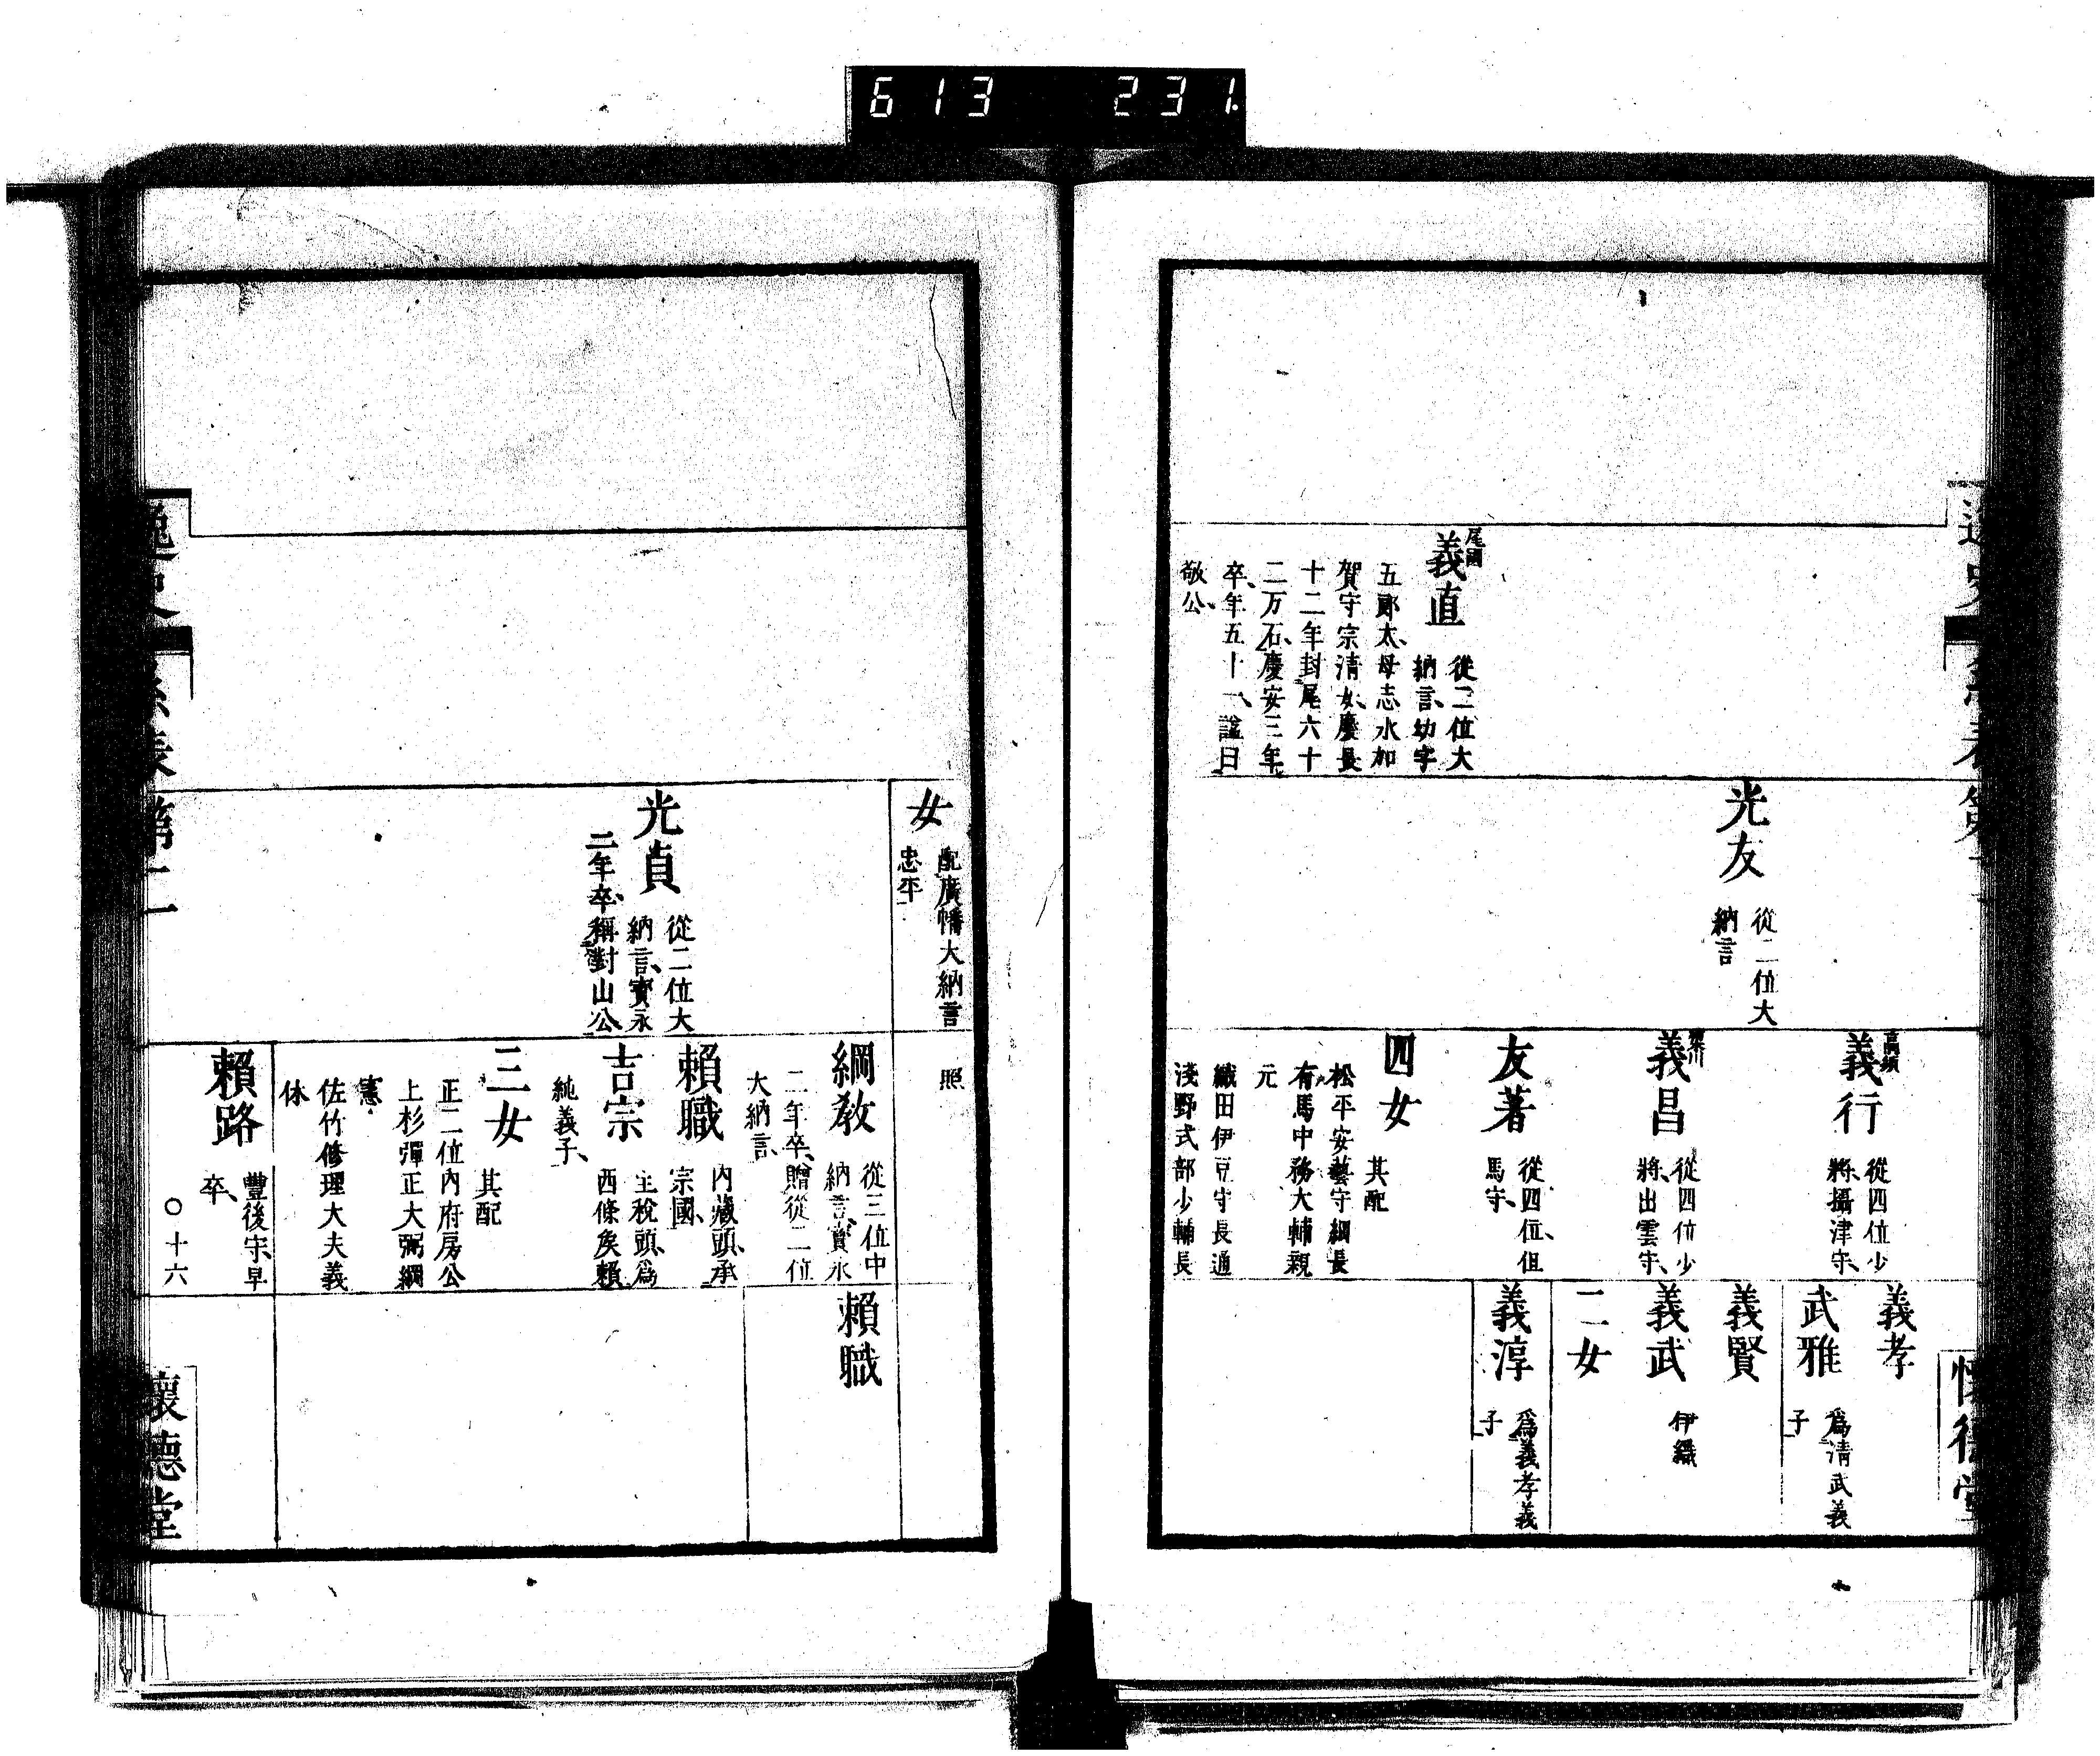 613 231.
尾國
義直
從二位大
納言、幼字
五郎太、母志水加
賀守宗清女、慶長
十二年封尾六十
二万石、慶安三年
卒、年五十一、諡曰
敬公、
光友
從二位大
納言
高須
義行
從四位少
將、攝津守、
梁川
義昌
從四位少
將、出雲守、
友著
從四位、但
馬守、
四女
其配
松平安藝守綱長
有馬中務大輔親
元
織田伊豆守長通
淺野式部少輔長
義孝
武雅
爲清武義
子
義賢
義武
伊織
二女
義淳
爲義孝義
子
懷德堂
女
配廣幡大納言
忠平
光貞
從二位大
納言、寶永
二年卒、稱對山公、
照
綱教
從三位中
納言、寶永
二年卒、贈從二位
大納言、
賴職
內藏頭、承
宗國、
吉宗
主稅頭、爲
西條矦賴
純義子、
三女
其配
正二位內府房公
上杉彈正大弼綱
憲
佐竹修理大夫義
休
賴路
豐後守、早
卒、
賴職
逸史
系表
第二
〇十六
懷德堂